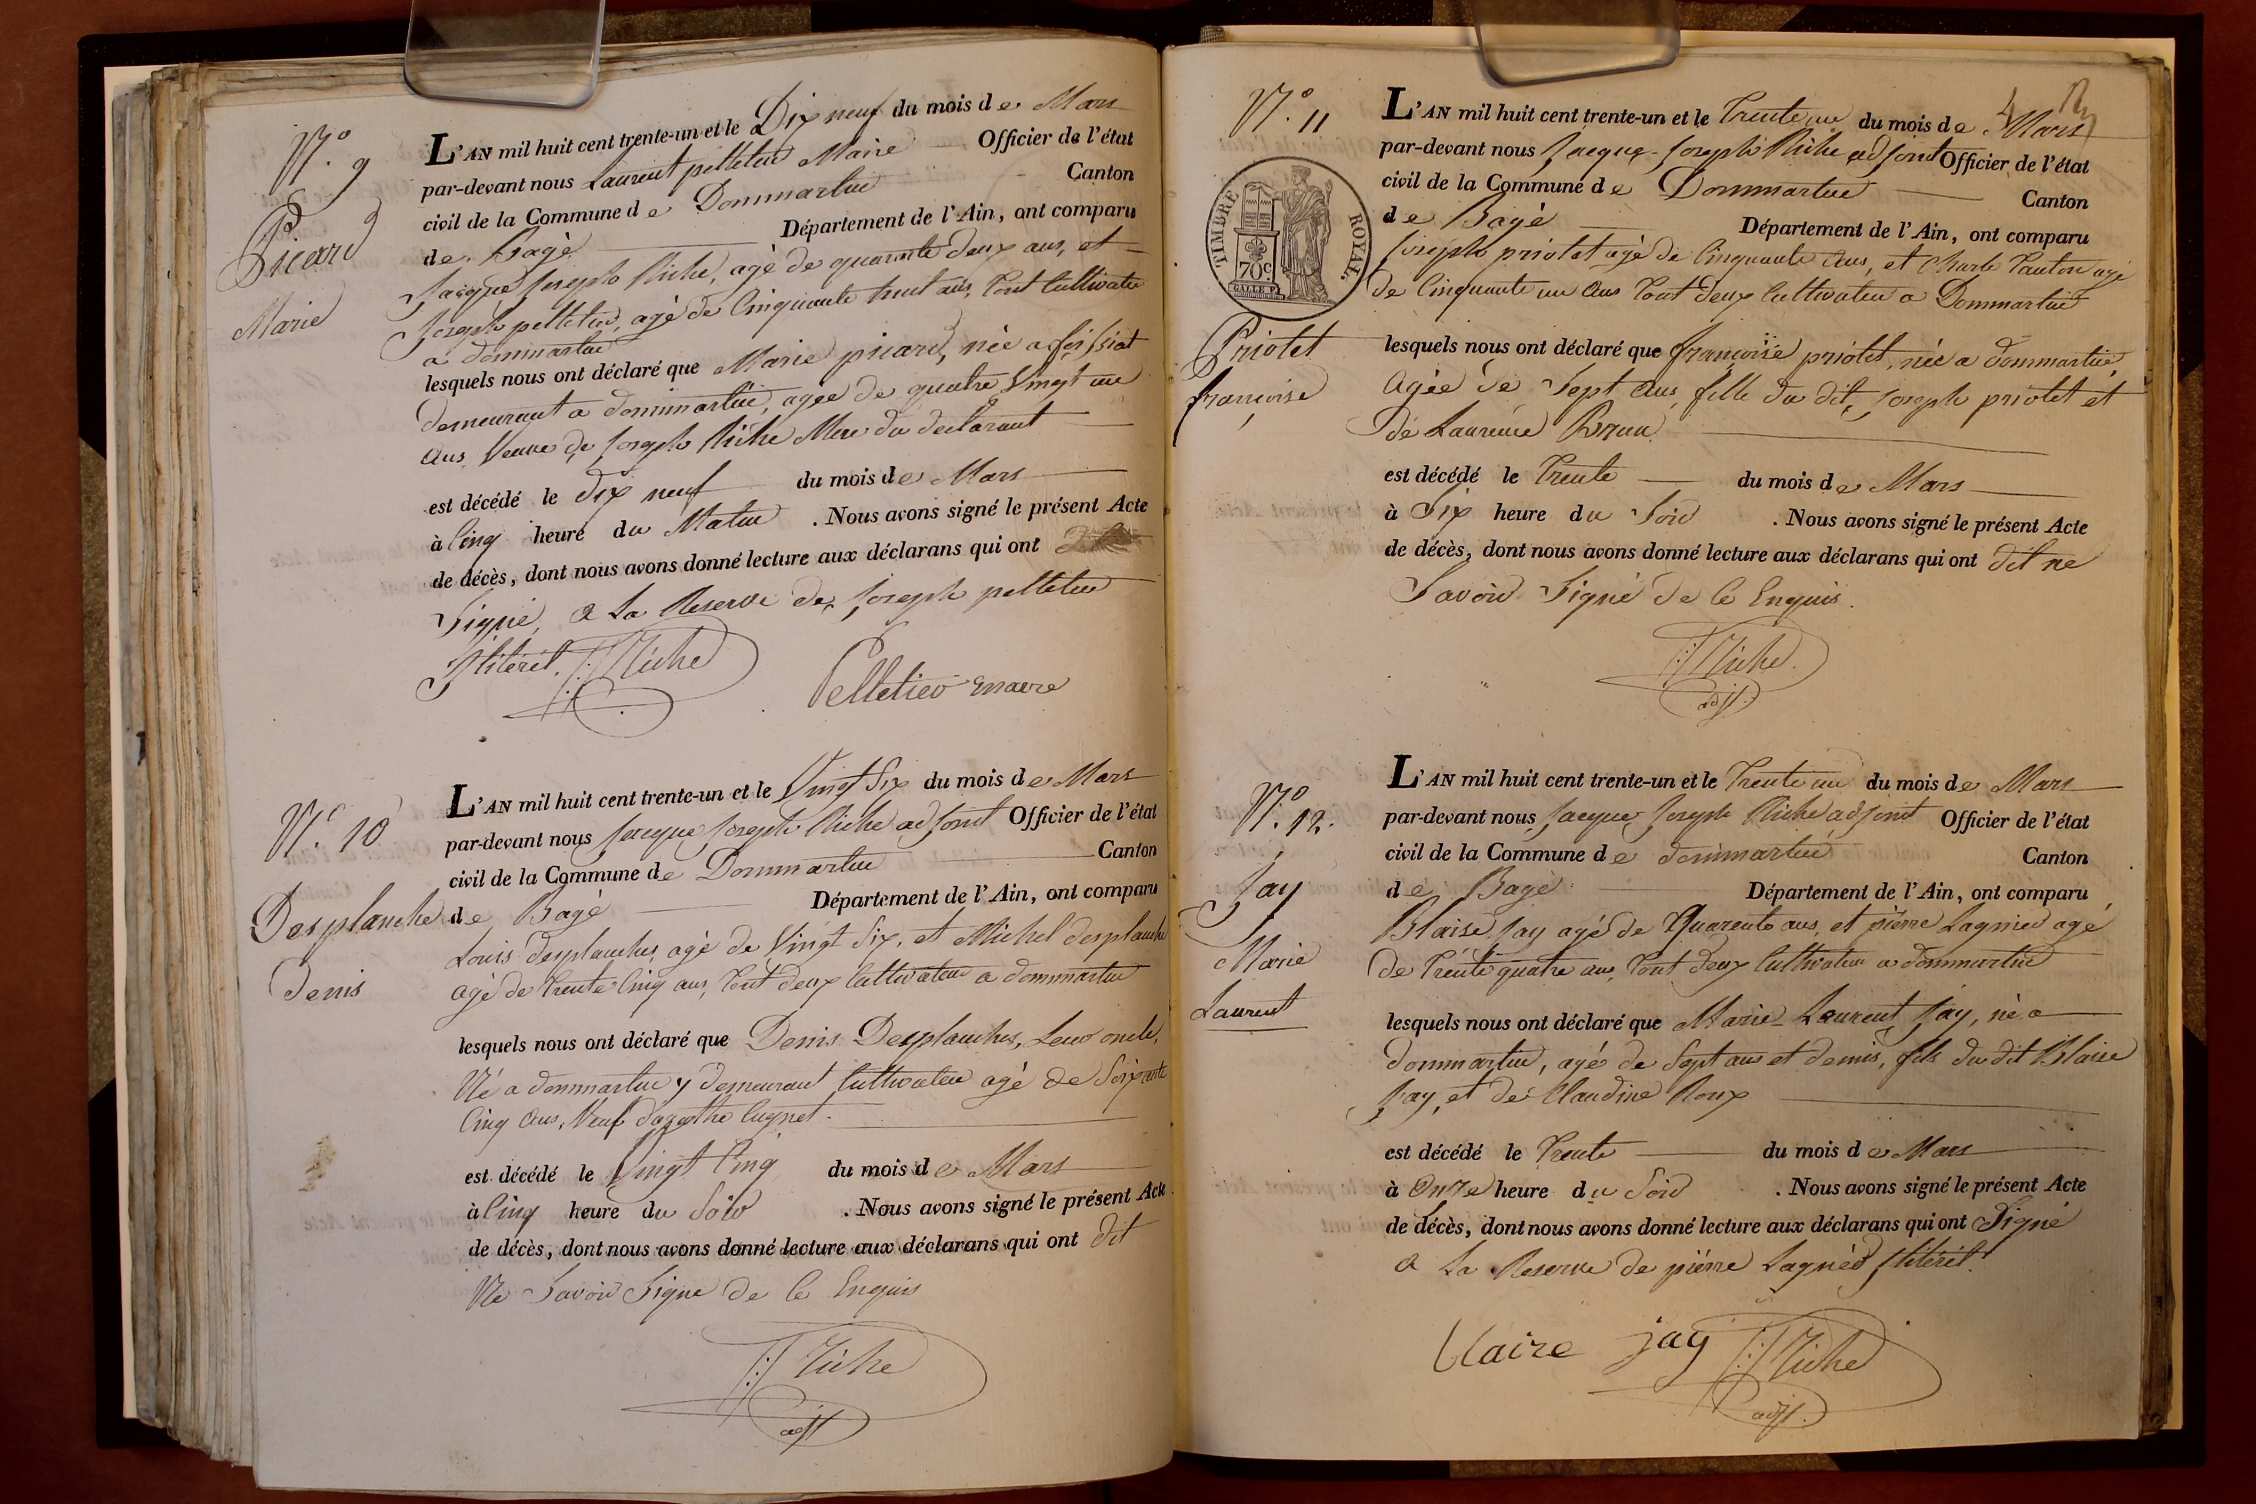 N.° 9
Picard
Marie
L'AN mil huit cent trente-un et le Dix neuf du mois de Mars
par-devant nous Laurent pelletier Maire Officier de l'état
civil de la Commune de Dommartin Canton
de Bagé Département de l'Ain, ont comparu
Jacque Joseph Riche, agé de quarante deux ans, et
Joseph pelletier, agé de Cinquante huit ans, tout Cultivateur
a dommartin
lesquels nous ont déclaré que Marie picard, née a foissiat
demeurant a dommartin, agee de quatre Vingt un
ans, Veuve de Joseph Riche Mere du declarant
est décédé le dix neuf du mois de Mars
à Cinq heure du Matin . Nous avons signé le présent Acte
de décès, dont nous avons donné lecture aux déclarans qui ont
Signé, a La Reserve de Joseph pelletier
Ilitéré. Riche
Pelletier maire
N.° 10
Desplanche
Denis
L'AN mil huit cent trente-un et le Vingt Six du mois de Mars
par-devant nous Jacque Joseph Riche adjoint Officier de l'état
civil de la Commune de Dommartin Canton
de Bagé Département de l'Ain, ont comparu
Louis Desplanches, agé de Vingt Six, et Michel desplanche
agé de trente Cinq ans, tout deux Cultivateur a dommartin
lesquels nous ont déclaré que Denis Desplanches, Leur oncle,
Né a dommartin y demeurant Cultivateur agé de Soixante
Cinq ans, Veuf dagathe Cugnet.
est décédé le Vingt Cinq du mois de Mars
à Cinq heure du Soir . Nous avons signé le présent Acte
de décès, dont nous avons donné lecture aux déclarans qui ont dit
Ne Savoir Signe de Ce Enquis
Riche
adjt
N.° 11
TIMBRE ROYAL
70c
Priolet
françoise
L'AN mil huit cent trente-un et le Trente un du mois de Mars
par-devant nous Jacque Joseph Riche adjoint Officier de l'état
civil de la Commune de Dommartin Canton
de Bagé Département de l'Ain, ont comparu
Joseph priolet agé de Cinquante Ans, et Charle Tanton agé
de Cinquante un Ans tout deux Cultivateur a Dommartin
lesquels nous ont déclaré que françoise priolet, née a dommartin,
Agée de Sept Ans, fille du dit, Joseph priolet et
de Laurence Brun
est décédé le Trente du mois de Mars
à Six heure du Soir . Nous avons signé le présent Acte
de décès, dont nous avons donné lecture aux déclarans qui ont dit ne
Savoir Signé de Ce Enquis.
Riche.
adjt.
N.° 12.
Jay
Marie
Laurent
L'AN mil huit cent trente-un et le Trente un du mois de Mars
par-devant nous Jacque Joseph Riche adjoint Officier de l'état
civil de la Commune de dommartin Canton
de Bagé Département de l'Ain, ont comparu
Blaise Jay agé de Quarente ans, et piérre Lagnier agé
de Trente quatre ans, tout deux Cultivateur a dommartin
lesquels nous ont déclaré que Marie Laurent Jay, né a
dommartin, agé de Sept ans et demis, fils du dit Blaise
Jay, et de Claudine Roux
est décédé le Trente du mois de Mars
à Onze heure du Soir . Nous avons signé le présent Acte
de décès, dont nous avons donné lecture aux déclarans qui ont Signé
a La Reserve de piérre Lagnier Ilitéré.
blaize jay Riche
adjt.